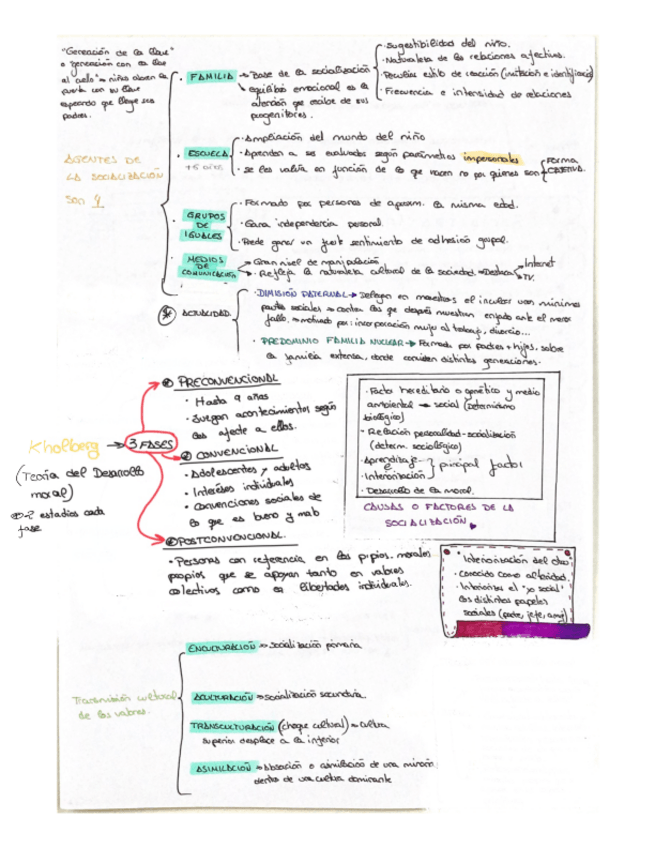 "Generación de la llave"
o generación con la llave
al cielo" → niños abren la
puerta con su llave
esperando que llegue sus
padres.
AGENTES DE
LA SOCIALIZACIÓN
son 4
· FAMILIA → Base de la socialización
equilibrio emocional es la
atención que recibe de sus
progenitores.
· Sugestibilidad del niño.
· Naturaleza de las relaciones afectivas.
· Peculiar estilo de reacción (imitación e identificación)
· Frecuencia e intensidad de relaciones
· ESCUELA
· Ampliación del mundo del niño
· Aprenden a ser evaluados según parámetros impersonales
· se les valora en función de lo que hacen no por quienes son
FORMA
OBJETIVA.
· GRUPOS
DE
IGUALES
· Formado por personas de aproxim. la misma edad.
· Gana independencia personal.
· Puede generar un fuerte sentimiento de adhesión grupal.
· MEDIOS
DE
COMUNICACIÓN
→ Gran nivel de manipulación
→ Refleja la naturaleza cultural de la sociedad → Destacan
Internet
TV.
ACTUALIDAD.
· DIMISIÓN PATERNAL → Delegan en maestros el inculcar unas mínimas
pautas sociales → contra los que después muestran enfado ante el menor
fallo. → motivado por: incorporación mujer al trabajo, divorcio...
· PREDOMINIO FAMILIA NUCLEAR → Formada por padres + hijos, sobre
la familia extensa, donde conviven distintas generaciones.
Kholberg → 3 FASES
(Teoría del Desarrollo
moral)
2 estadios cada
fase
① PRECONVENCIONAL
· Hasta 9 años
· Juzgan acontecimientos según
les afecte a ellos.
② CONVENCIONAL
· Adolescentes y adultos
· Intereses individuales
· Convenciones sociales de
lo que es bueno y malo
③ POSTCONVENCIONAL.
· Personas con referencia en los ppios. morales
propios que se apoyan tanto en valores
colectivos como en libertades individuales.
· Factor hereditario o genético y medio
ambiental → social (Determinismo
biológico)
· Relación personalidad-socialización
(determ. sociológico)
· Aprendizaje
· Interiorización
} principal factor
· Desarrollo de la moral.
CAUSAS O FACTORES DE LA
SOCIALIZACIÓN
· Interiorización del otro
· Conocido como alteridad.
· Interioriza el "yo social"
los distintos papeles
sociales (padre, jefe, amig)
Transmisión cultural
de los valores.
ENCULTURACIÓN → socialización primaria
ACULTURACIÓN → socialización secundaria.
TRANSCULTURACIÓN (choque cultural) → Cultura
superior desplaza a la inferior
ASIMILACIÓN → Absorción o asimilación de una minoría
dentro de una cultura dominante